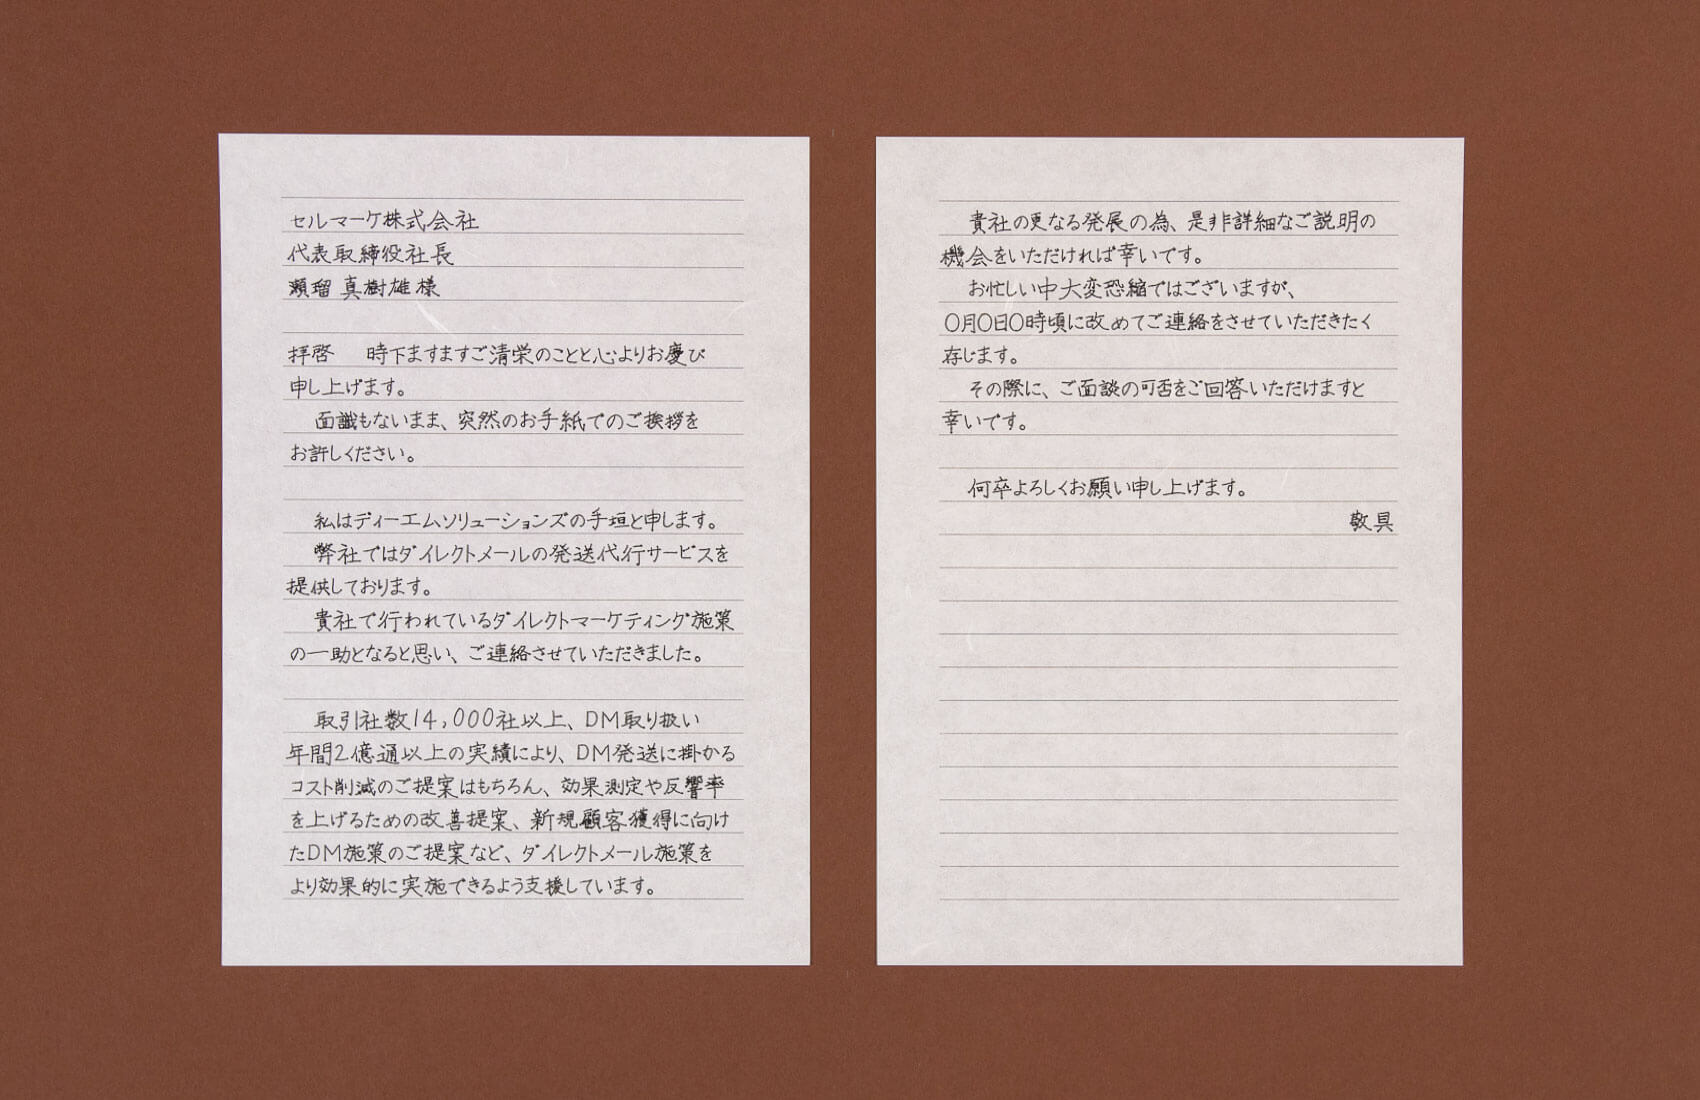 セルマーケ株式会社
代表取締役社長
瀬瑠 真樹雄様
拝啓　時下ますますご清栄のことと心よりお慶び
申し上げます。
面識もないまま、突然のお手紙でのご挨拶を
お許しください。
私はディーエムソリューションズの手垣と申します。
弊社ではダイレクトメールの発送代行サービスを
提供しております。
貴社で行われているダイレクトマーケティング施策
の一助となると思い、ご連絡させていただきました。
取引社数14,000社以上、DM取り扱い
年間2億通以上の実績により、DM発送に掛かる
コスト削減のご提案はもちろん、効果測定や反響率
を上げるための改善提案、新規顧客獲得に向け
たDM施策のご提案など、ダイレクトメール施策を
より効果的に実施できるよう支援しています。
貴社の更なる発展の為、是非詳細なご説明の
機会をいただければ幸いです。
お忙しい中大変恐縮ではございますが、
〇月〇日〇時頃に改めてご連絡をさせていただきたく
存じます。
その際に、ご面談の可否をご回答いただけますと
幸いです。
何卒よろしくお願い申し上げます。
敬具